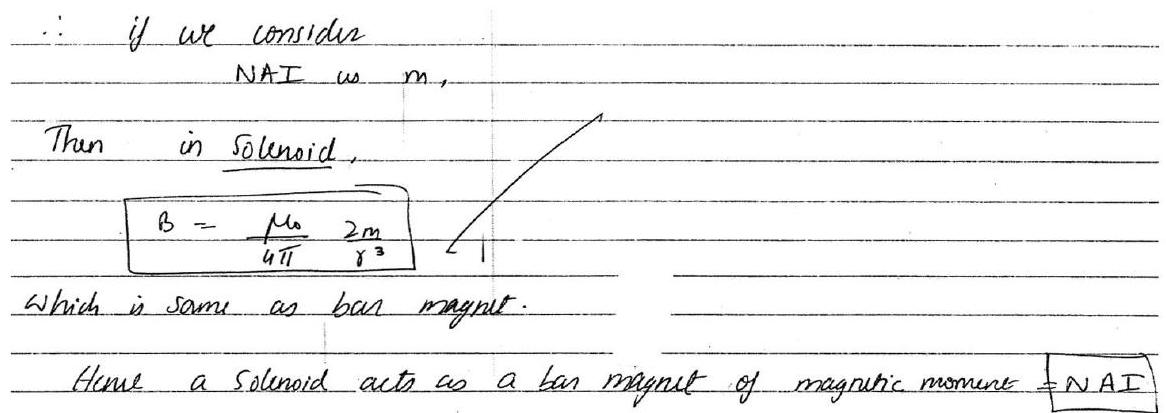 ∴ if we consider
NAI as m,
Then in Solenoid,
B = μ₀/4π 2m/r³
which is same as bar magnet.
Hence a Solenoid acts as a bar magnet of magnetic moment = NAI